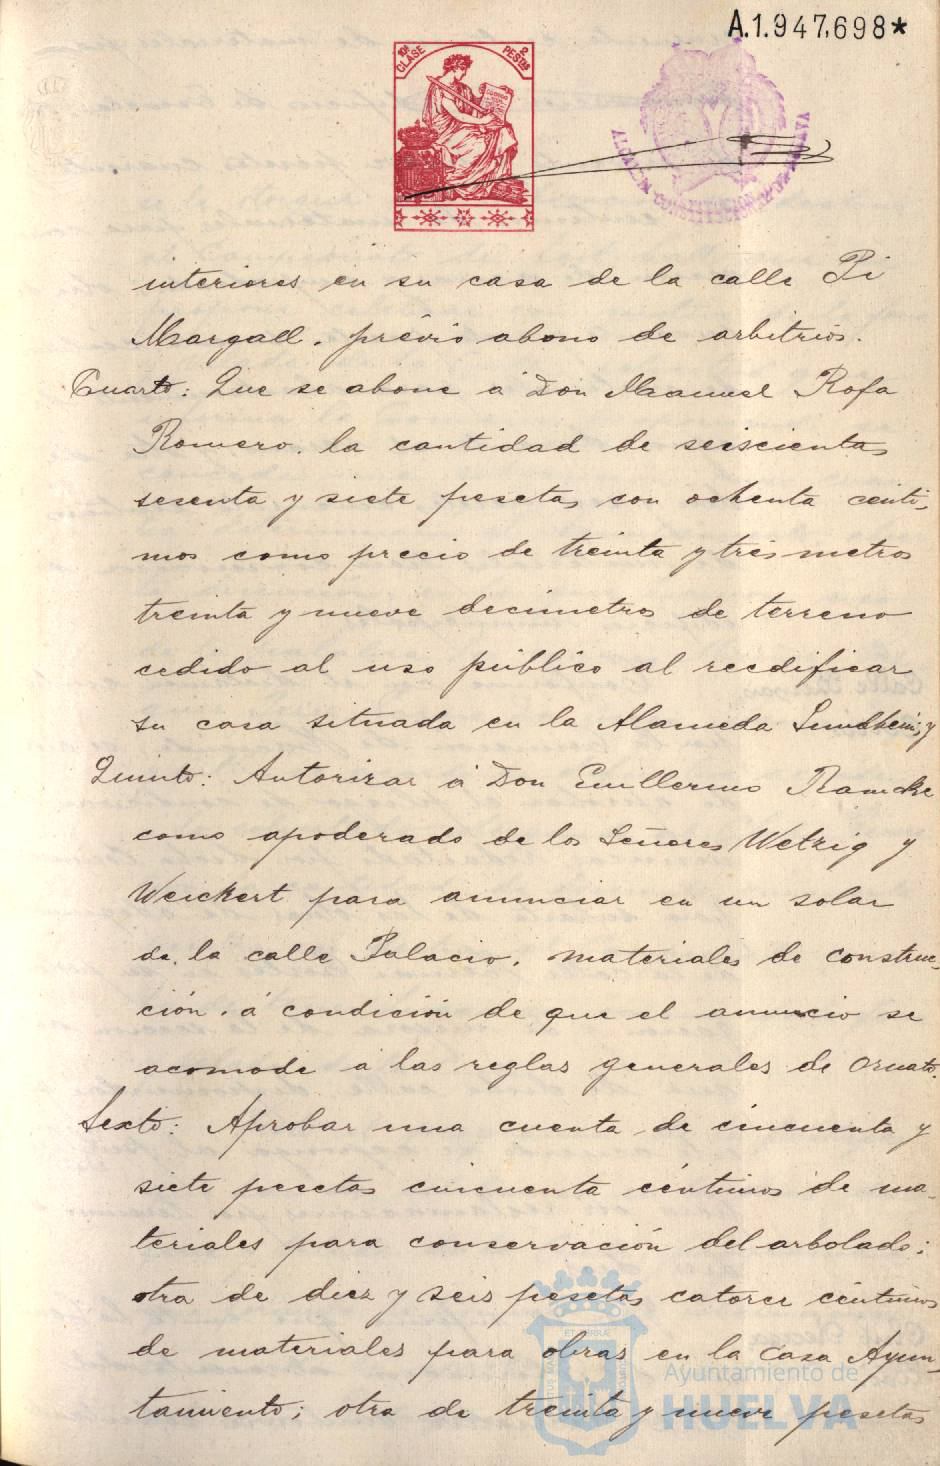 A.1.947,698*
10ª CLASE 2 PESTAS
ALCALDIA CONSTITUCIONAL DE HUELVA
interiores en su casa de la calle Pi
Margall, prévio abono de arbitrios.
Cuarto: Que se abone á Don Manuel Rofa
Romero, la cantidad de seiscientas
sesenta y siete pesetas con ochenta centi-
mos como precio de treinta y tres metros
treinta y nueve decimetros de terreno
cedido al uso público al reedificar
su casa situada en la Alameda Sundheim; y
Quinto: Autorizar á Don Guillermo
como apoderado de los Señores Wetzig y
Weickert para anunciar en un solar
de la calle Palacio, materiales de construc-
ción, á condición de que el anuncio se
acomode a las reglas generales de ornato.
Sexto: Aprobar una cuenta de cincuenta y
siete pesetas cincuenta céntimos de ma-
teriales para conservación del arbolado;
otra de diez y seis pesetas catorce céntimos
de materiales para obras en la Casa Ayun-
tamiento; otra de treinta y nueve pesetas
Ayuntamiento de
HUELVA